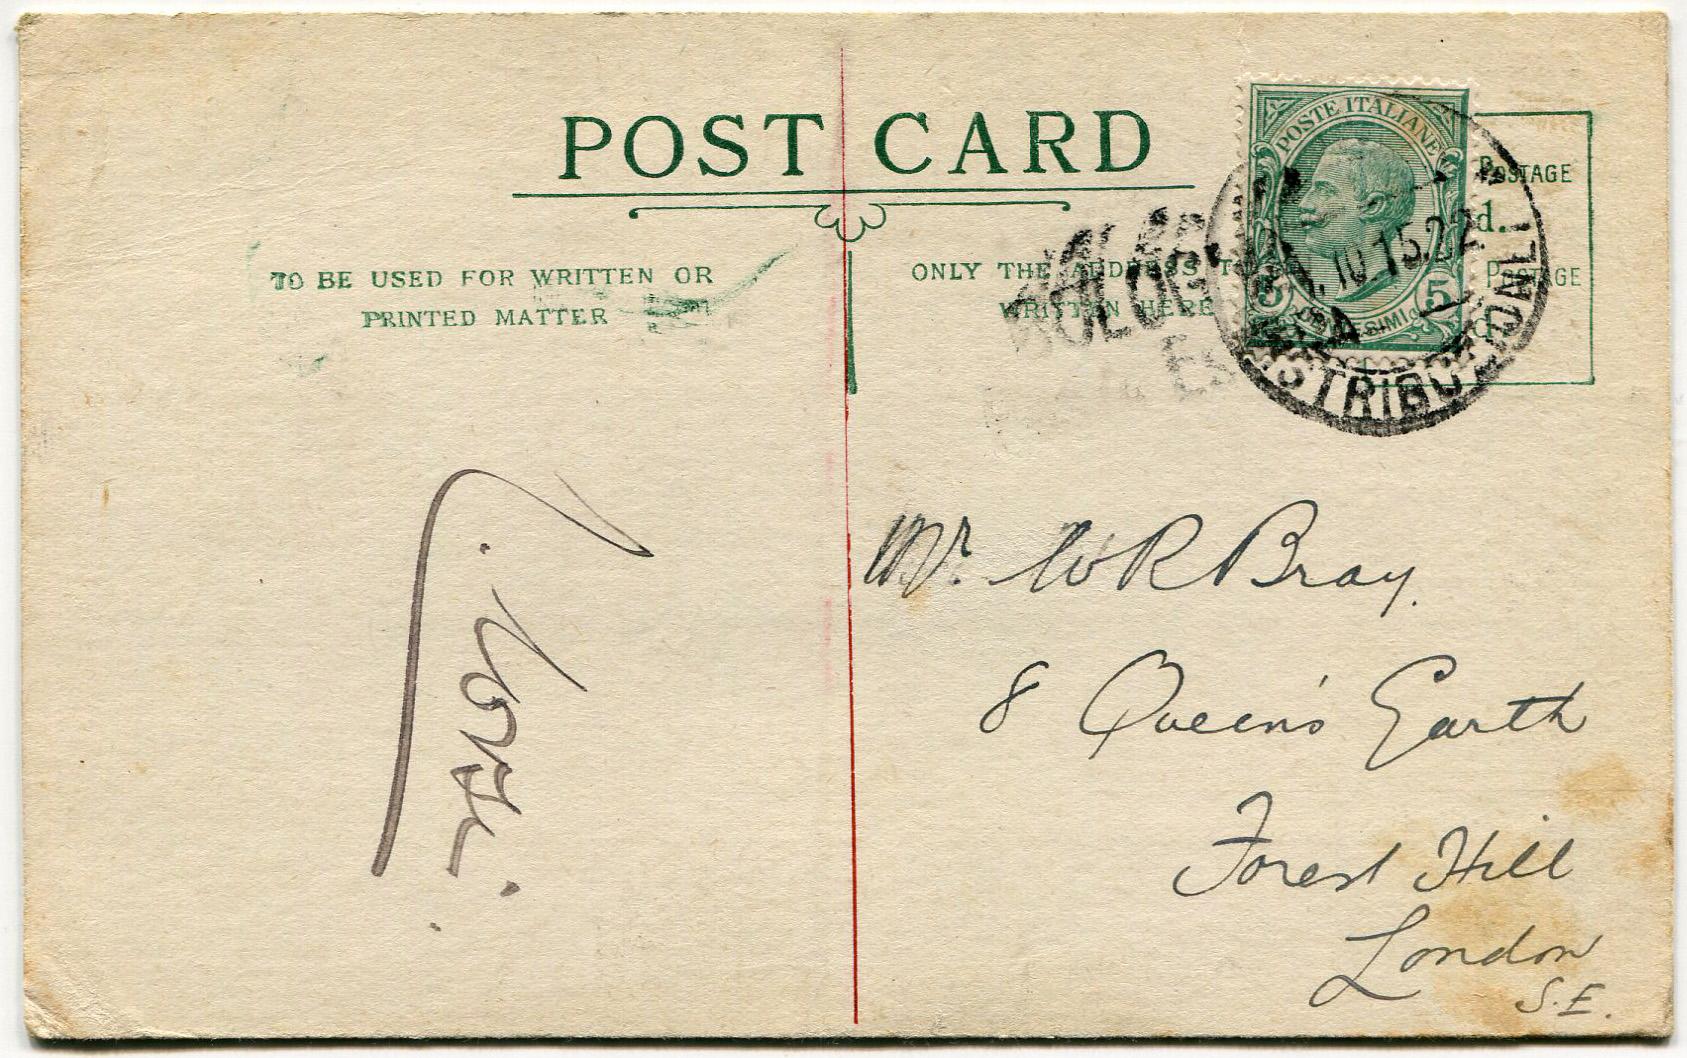 POST CARD
TO BE USED FOR WRITTEN OR
PRINTED MATTER
ONLY THE ADDRESS T
WRITTEN HERE
POSTE ITALIANE
5 5
POSTAGE
d.
POSTAGE
10 15.22
Mr. W R Bray.
8 Queen's Garth
Forest Hill
London
S.E.